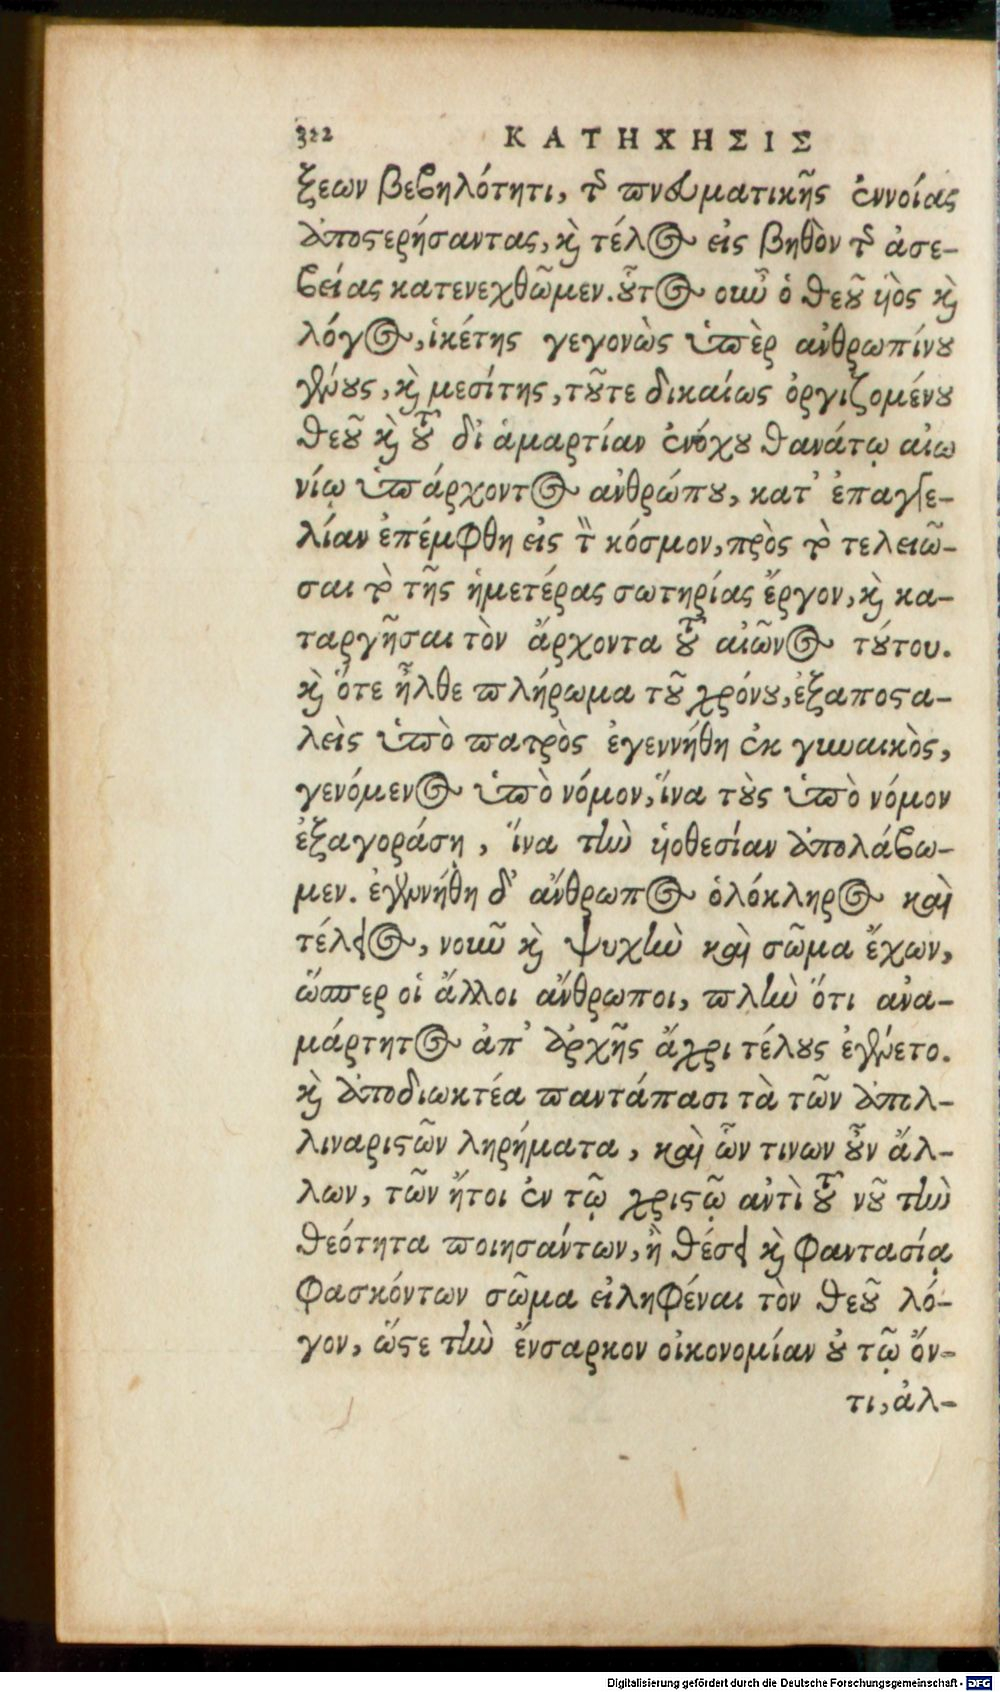 322 ΚΑΤΗΧΗΣΙΣ
ξεων βεβηλότητι, τῆς πνευματικῆς ἐννοίας
ἀποστερήσαντας, καὶ τέλος εἰς βηθὸν τῆς ἀσε-
βείας κατενεχθῶμεν. οὗτος οὖν ὁ θεοῦ ὑὸς καὶ
λόγος, ἱκέτης γεγονὼς ὑπὲρ ἀνθρωπίνου
γένους, καὶ μεσίτης, τοῦτε δικαίως ὀργιζομένου
θεοῦ καὶ τοῦ δι ἁμαρτίαν ἐνόχου θανάτῳ αἰω
νίῳ ὑπάρχοντος ἀνθρώπου, κατ' ἐπαγγε-
λίαν ἐπέμφθη εἰς τὸν κόσμον, πρὸς τὸ τελειῶ-
σαι τὸ τῆς ἡμετέρας σωτηρίας ἔργον, καὶ κα-
ταργῆσαι τὸν ἄρχοντα τοῦ αἰῶνος τούτου.
καὶ ὅτε ἦλθε πλήρωμα τοῦ χρόνου, ἐξαποστα-
λεὶς ὑπὸ πατρὸς ἐγεννήθη ἐκ γυναικὸς,
γενόμενος ὑπὸ νόμον, ἵνα τοὺς ὑπὸ νόμον
ἐξαγοράσῃ, ἵνα τὴν ὑοθεσίαν ἀπολάβω-
μεν. ἐγεννήθη δ' ἄνθρωπος ὁλόκληρος καὶ
τέλειος, νοῦν καὶ ψυχὴν καὶ σῶμα ἔχων,
ὥσπερ οἱ ἄλλοι ἄνθρωποι, πλὴν ὅτι ἀνα-
μάρτητος ἀπ' ἀρχῆς ἄχρι τέλους ἐγένετο.
καὶ ἀποδιωκτέα παντάπασι τὰ τῶν ἀπολ-
λιναριστῶν ληρήματα, καὶ ὧν τινων οὖν ἄλ-
λων, τῶν ἤτοι ἐν τῷ χριστῷ ἀντὶ τοῦ νοῦ τὴν
θεότητα ποιησάντων, ἢ θέσει καὶ φαντασίᾳ
φασκόντων σῶμα εἰληφέναι τὸν θεοῦ λό-
γον, ὥστε τὴν ἔνσαρκον οἰκονομίαν οὐ τῷ ὄν-
τι, ἀλ-
Digitalisierung gefördert durch die Deutsche Forschungsgemeinschaft - DFG